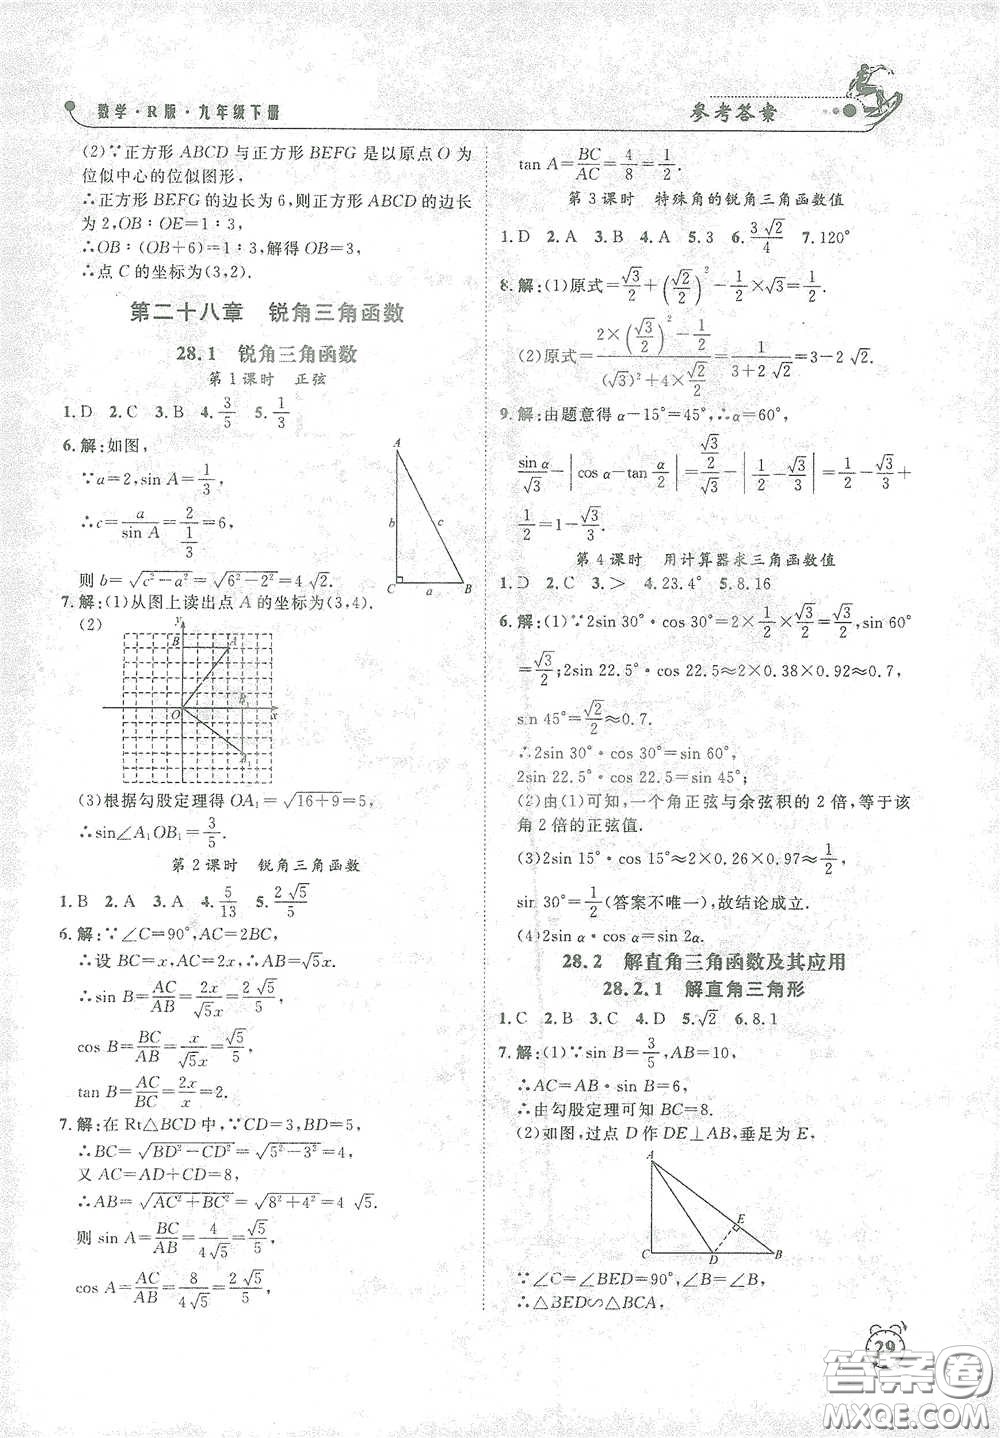 数学·R版·九年级下册
参考答案
(2)∵正方形 ABCD 与正方形 BEFG 是以原点 O 为
位似中心的位似图形，
∴正方形 BEFG 的边长为 6，则正方形 ABCD 的边长
为 2，OB∶OE＝1∶3，
∴OB∶(OB＋6)＝1∶3，解得 OB＝3，
∴点 C 的坐标为(3，2).
第二十八章　锐角三角函数
28.1　锐角三角函数
第 1 课时　正弦
1.D　2.C　3.B　4.3/5　5.1/3
6.解：如图，
∵a＝2，sin A＝1/3，
∴c＝a/sin A＝2/(1/3)＝6，
则 b＝√(c²－a²)＝√(6²－2²)＝4√2.
A
b
c
C
a
B
7.解：(1)从图上读出点 A 的坐标为(3，4).
(2)
y
B
A
O
B₁
x
A₁
(3)根据勾股定理得 OA₁＝√(16＋9)＝5，
∴sin∠A₁OB₁＝3/5.
第 2 课时　锐角三角函数
1.B　2.A　3.A　4.5/13　5.2√5/5
6.解：∵∠C＝90°，AC＝2BC，
∴设 BC＝x，AC＝2x，∴AB＝√5x，
sin B＝AC/AB＝2x/√5x＝2√5/5，
cos B＝BC/AB＝x/√5x＝√5/5，
tan B＝AC/BC＝2x/x＝2.
7.解：在 Rt△BCD 中，∵CD＝3，BD＝5，
∴BC＝√(BD²－CD²)＝√(5²－3²)＝4，
又 AC＝AD＋CD＝8，
∴AB＝√(AC²＋BC²)＝√(8²＋4²)＝4√5，
则 sin A＝BC/AB＝4/4√5＝√5/5，
cos A＝AC/AB＝8/4√5＝2√5/5，
tan A＝BC/AC＝4/8＝1/2.
第 3 课时　特殊角的锐角三角函数值
1.D　2.A　3.B　4.A　5.3　6.3√2/4　7.120°
8.解：(1)原式＝√3/2＋(√2/2)²＝√3/2＋1/2＝(√3＋1)/2.
(2)原式＝(2×(√3/2)²)/((√3)²＋4×√2/2)＝(3/2)/(3＋2√2)＝3－2√2.
9.解：由题意得 α－15°＝45°，∴α＝60°，
sin α/√3－|cos α－tan α/√3|＝(√3/2)/√3－|1/2－√3/3|＝1/2－√3/3＋
1/2＝1－√3/3.
第 4 课时　用计算器求三角函数值
1.D　2.C　3.＞　4.23.4°　5.8.16
6.解：(1)∵2sin 30°·cos 30°＝2×1/2×√3/2＝√3/2，sin 60°
＝√3/2；2sin 22.5°·cos 22.5≈2×0.38×0.92≈0.7，
sin 45°＝√2/2≈0.7.
∴2sin 30°·cos 30°＝sin 60°，
2sin 22.5°·cos 22.5°＝sin 45°；
(2)由(1)可知，一个角正弦与余弦积的 2 倍，等于该
角 2 倍的正弦值.
(3)2sin 15°·cos 15°≈2×0.26×0.97≈1/2，
sin 30°＝1/2(答案不唯一)，故结论成立.
(4)2sin α·cos α＝sin 2α.
28.2　解直角三角函数及其应用
28.2.1　解直角三角形
1.C　2.B　3.C　4.D　5.√2　6.8.1
7.解：(1)∵sin B＝3/5，AB＝10，
∴AC＝AB·sin B＝6，
∴由勾股定理可知 BC＝8.
(2)如图，过点 D 作 DE⊥AB，垂足为 E，
A
E
C
D
B
∵∠C＝∠BED＝90°，∠B＝∠B，
∴△BED∽△BCA，
29
答案圈
MXQE.COM